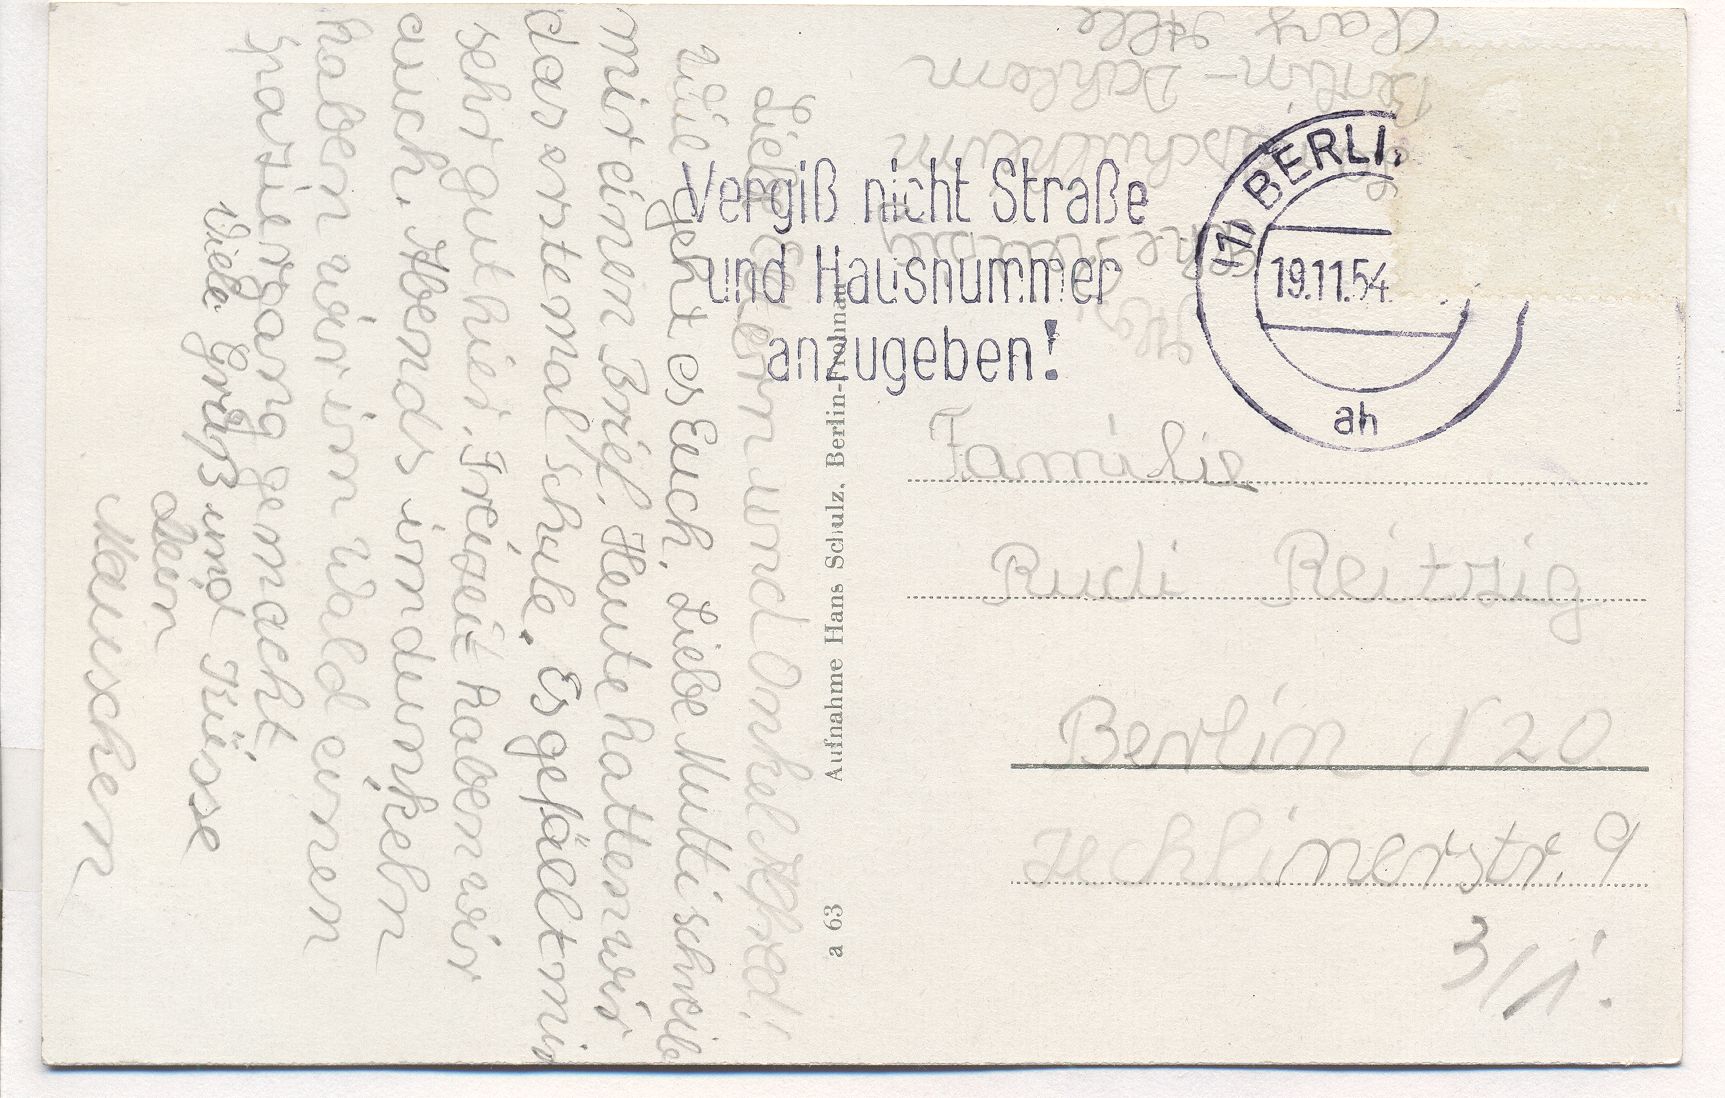 Liebe Eltern und Onkel Alfred!
Wie geht es Euch. Liebe Mutti schreib
mir einen Brief. Heute hatten wir
das erste mal schule. Es gefällt mir
sehr gut hier. Freizeit haben wir
auch. Abends im dunkeln
haben wir im Wald einen
spaziergang gemacht
Viele Grüße und Küsse
dein
Mäuschen
Aufnahme Hans Schulz, Berlin-Frohnau
a 63
Vergiß nicht Straße
und Hausnummer
anzugeben!
(1) BERLI
19.11.54
ah
Familie
Rudi Reitzig
Berlin N 20
Zechlinerstr. 9
3/1.
Berlin-Dahlem
Clay Alle